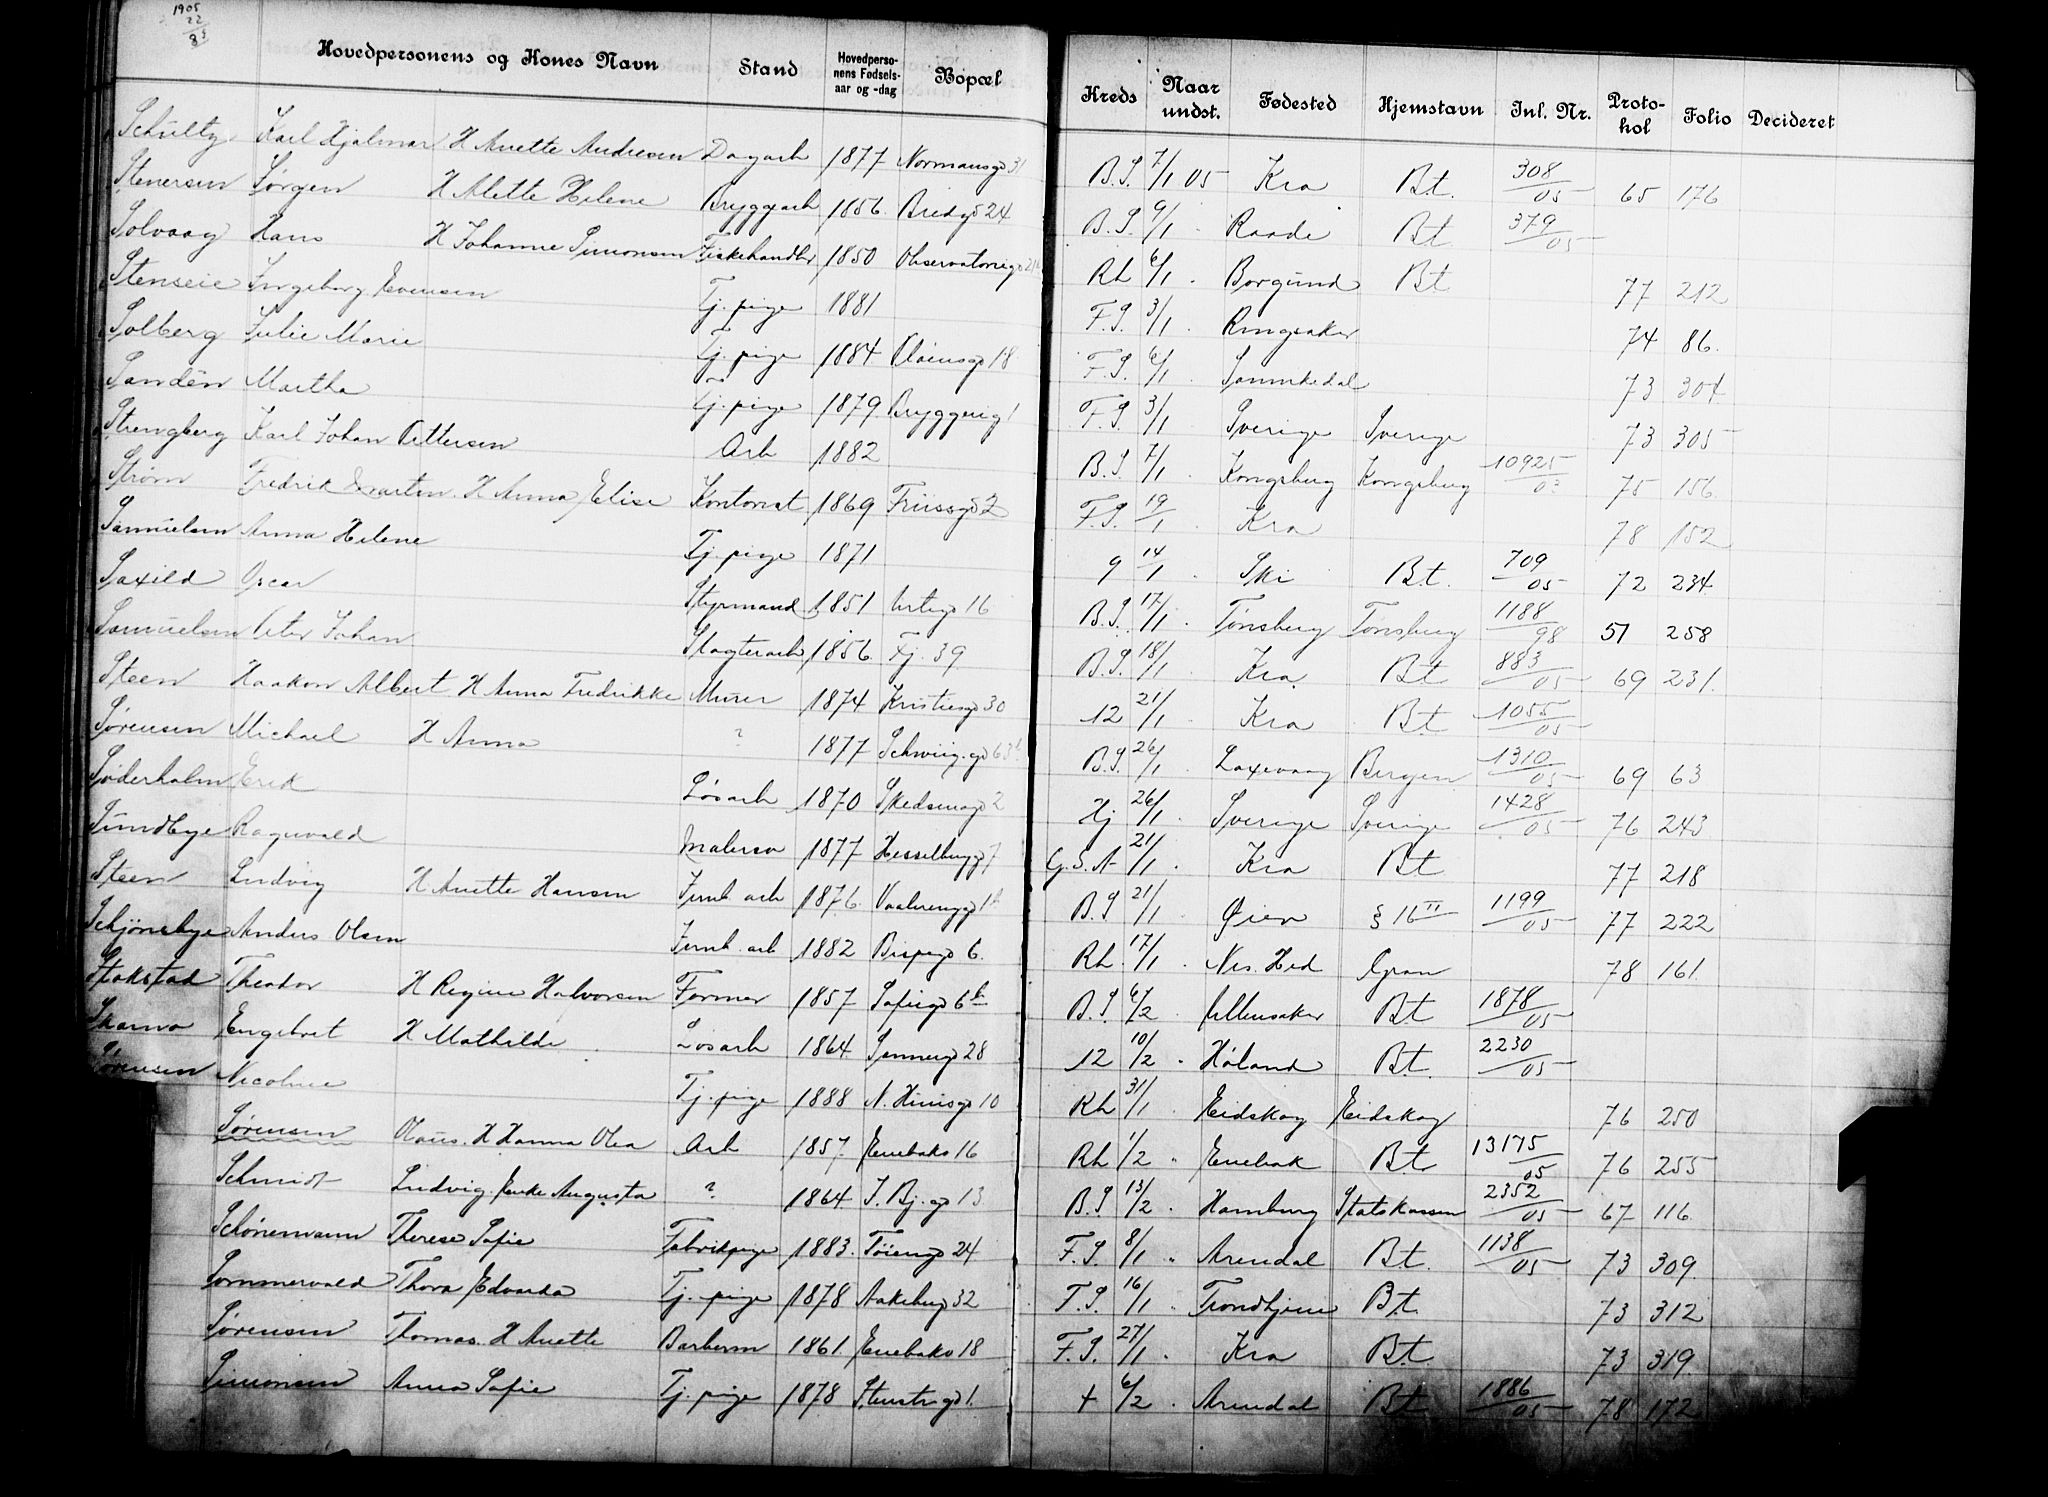 1905
22
83
Hovedpersonens og Kones Navn Stand Hovedpersonens Fødselsaar og -dag Bopæl Kreds Naar undst. Fødested Hjemstavn Inl. Nr. Protokol Folio Decideret
Schultz Karl Hjalmar H Anette Andresen Dagarb 1877 Normansgd 31 B.S. 7/1 05 Kra Bt. 308/05 65 176
Stenersen Jørgen H Alette Helene Bryggarb 1856 Bredgd 24 B.S. 9/1 Raade Bt 379/05
Solvaag Hans H Johanne Simonsen Fiskehandler 1850 Observatoriegd Rh 6/1 Borgund Bt 77 212
Stenseie Ingeborg Evensen Tj. pige 1881 F.S. 3/1 Ringsaker 74 86
Solberg Julie Marie Tj. pige 1884 Claussgd 18 F.S. 6/1 Sannikedal 73 304
Sandén Martha Tj. pige 1879 Bryggerig 1 F.S. 3/1 Sverige Sverige 73 305
Strengberg Karl Johan Pettersen Arb 1882 B.S. 7/1 Kongsberg Kongsberg 10925/03 75 156
Strøm Fredrik Martin H Anna Elise Kontorist 1869 Friisgd 2 F.S. 19/1 Kra 78 152
Samuelsen Anna Helene Tj. pige 1871 9 14/1 Ski Bt. 709/05 72 234
Saxild Oscar Styrmand 1851 Urtegd 16 B.S. 17/1 Tønsberg Tønsberg 1188/98 51 258
Samuelsen Peter Johan Slagterarb 1856 Fj. 39 B.S. 18/1 Kra Bt 883/05 69 231
Steen Haakon Albert H Anna Fredrikke Murer 1874 Kristiesgd 30 12 21/1 Kra Bt 1055/05
Sørensen Michael H Anna ? 1877 Schweig.gd 63 B.S. 26/1 Laxevaag Bergen 1310/05 69 63
Søderholm Erik Løsarb 1870 Skedsmogd 2 Hj 26/1 Sverige Sverige 1428/05 76 243
Sundbye Ragnvald Malersv 1877 Hesselbergg 7 G.S.A 21/1 Kra Bt 77 218
Steen Ludvig H Anette Hansen Jernb. arb 1876 Vaalerengg 1 B.S 21/1 Øier § 16 II 1199/05 77 222
Schjønsbye Anders Olsen Jernb. arb 1882 Bispegd 6. Rh. 17/1 Nes. Hed Gran 78 161
Stokstad Theodor H Regine Halvorsen Former 1857 Sofiegd 6b B.S 6/2 Ullensaker Bt 1878/05
Skarno Engebret H Mathilde Løsarb 1864 Jennergd 28 12 10/2 Høland Bt. 2230/05
Sørensen Nicoline Tj. pige 1888 N. Hansgd 10 Rh 31/1 Eidskog Eidskog 76 250
Sørensen Olaus. H Hanna Olea Arb 1857 Enebakv 16 Rh 1/2 Enebak Bt 13175/05 76 255
Schmidt Ludvig. Enke Augusta ? 1864 J. Bj. gd 13 B.S 13/2 Hamburg Statskassen 2352/05 67 116
Schønemann Therese Sofie Fabrikpige 1883 Tøiengd 24 F.S. 8/1 Arendal Bt. 1138/05 73 309.
Sommervold Thora Edvarda Tj. pige 1878 Aakebergv 32 F.S. 16/1 Trondhjem Bt. 73 312
Sørensen Thomas. H Anette Barberm 1861 Enebakv 18 F.S. 27/1 Kra Bt 73 319
Simonsen Anna Sofie Tj. pige 1878 Stenstrgd 1. + 6/2 Arendal Bt 1886/05 78 172